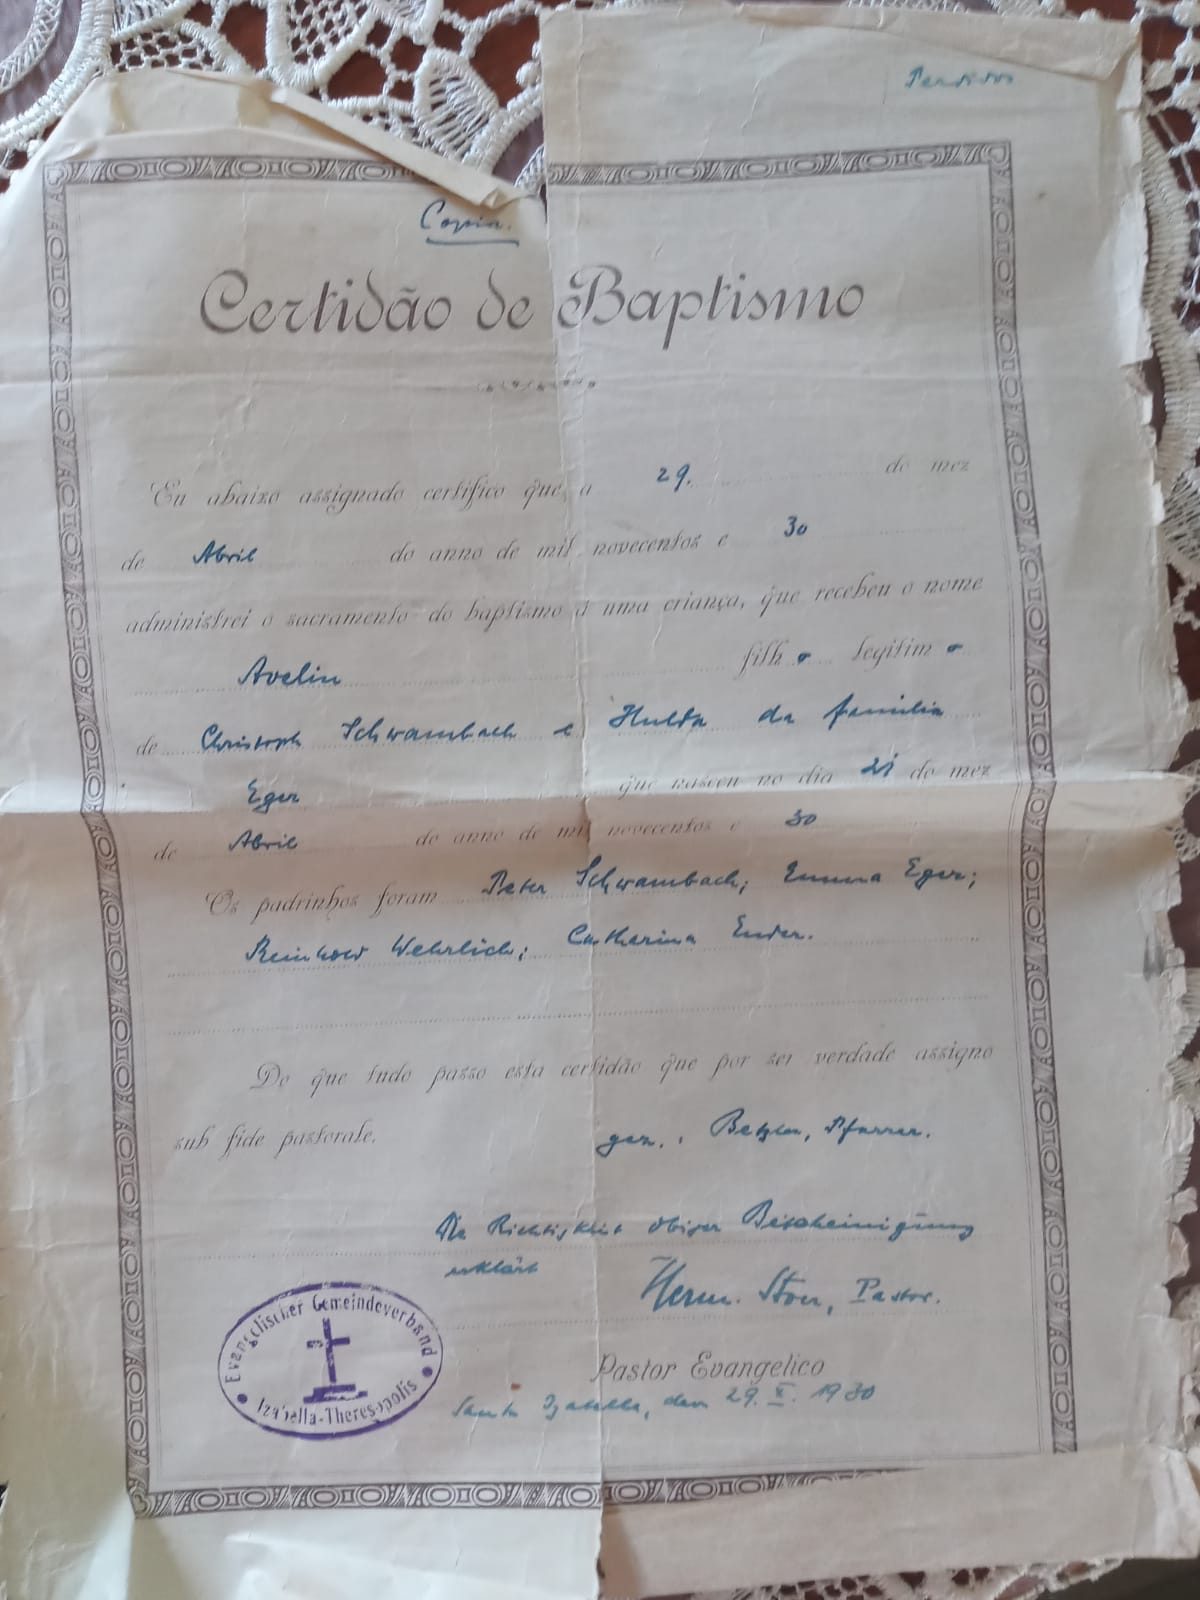 Copia.
Certidão de Baptismo
Eu abaixo assignado certifico que, a 29. do mez
de Abril do anno de mil novecentos e 30
administrei o sacramento do baptismo á uma criança, que recebeu o nome
Avelin filho legitimo
de Christoph Schwambach e Hulda da familia
Eger que nasceu no dia 21 do mez
de Abril do anno de mil novecentos e 30
Os padrinhos foram Peter Schwambach; Emma Eger;
Reinhold Wehrlich; Catharina Ender.
Do que tudo passo esta certidão que por ser verdade assigno
sub fide pastorale.
gez. Pfarrer.
Die Richtigkeit obiger Bescheinigung
erklärt
Herm. Stoer, Pastor.
Pastor Evangelico
Santa Izabella, den 29. X. 1930
Evangelischer Gemeindeverband
Izabella-Theresopolis